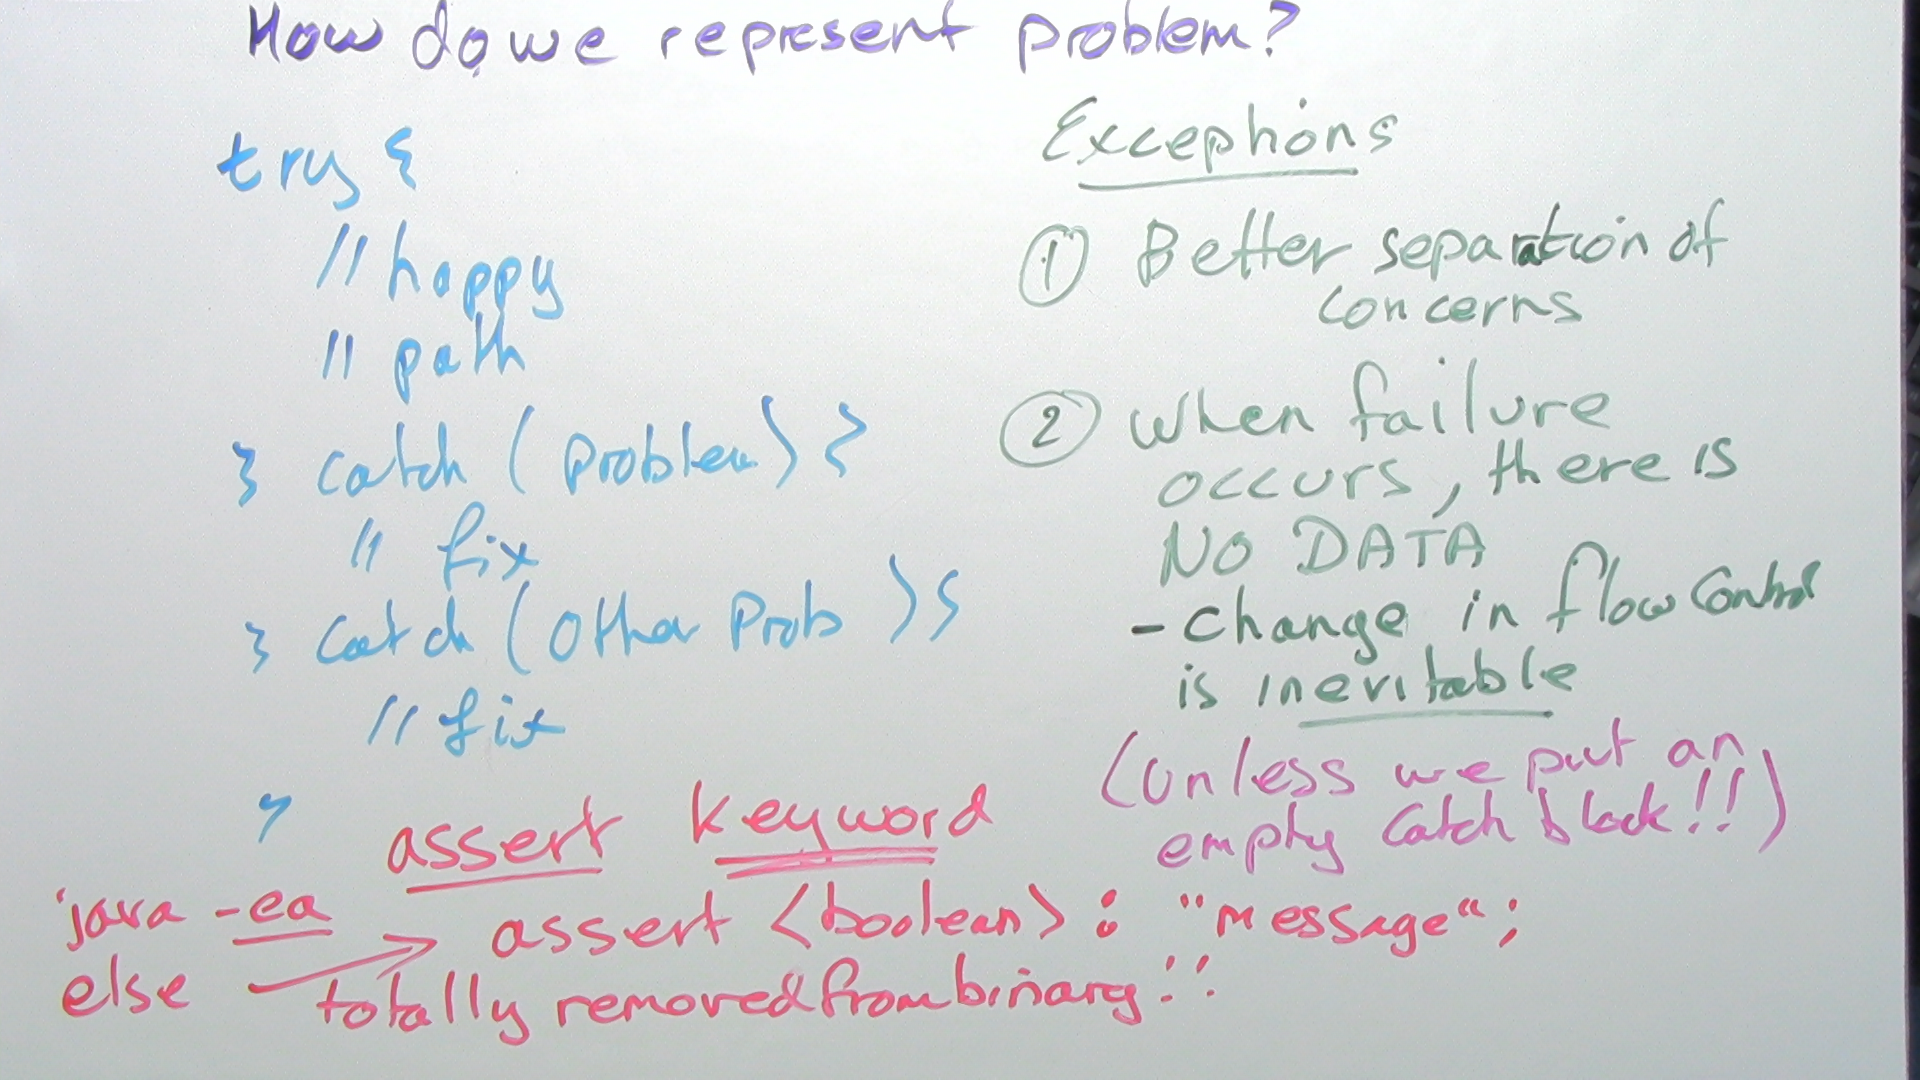 How do we represent problem?
try {
// happy
// path
} catch (problem) {
// fix
} catch (Other Prob ) {
// fix
}
Exceptions
① Better separation of
concerns
② When failure
occurs, there is
NO DATA
- change in flow control
is inevitable
(unless we put an
empty catch block!!)
assert keyword
java -ea
assert <boolean> : "message";
else
totally removed from binary!!